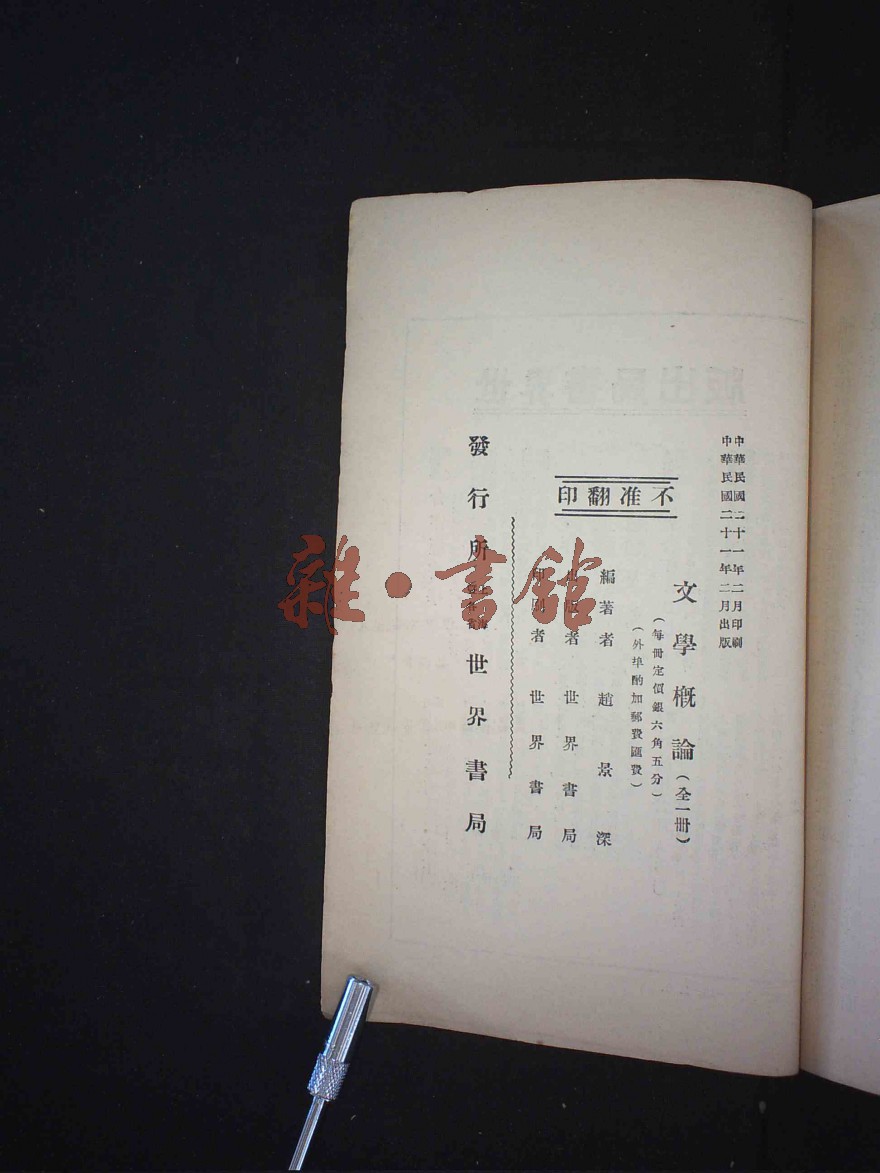 中華民國二十一年二月印刷
中華民國二十一年二月出版
文學概論（全一冊）
（每冊定價銀六角五分）
（外埠酌加郵費匯費）
不准翻印
編著者 趙景深
出版者 世界書局
印刷者 世界書局
發行所 世界書局
雜·書館